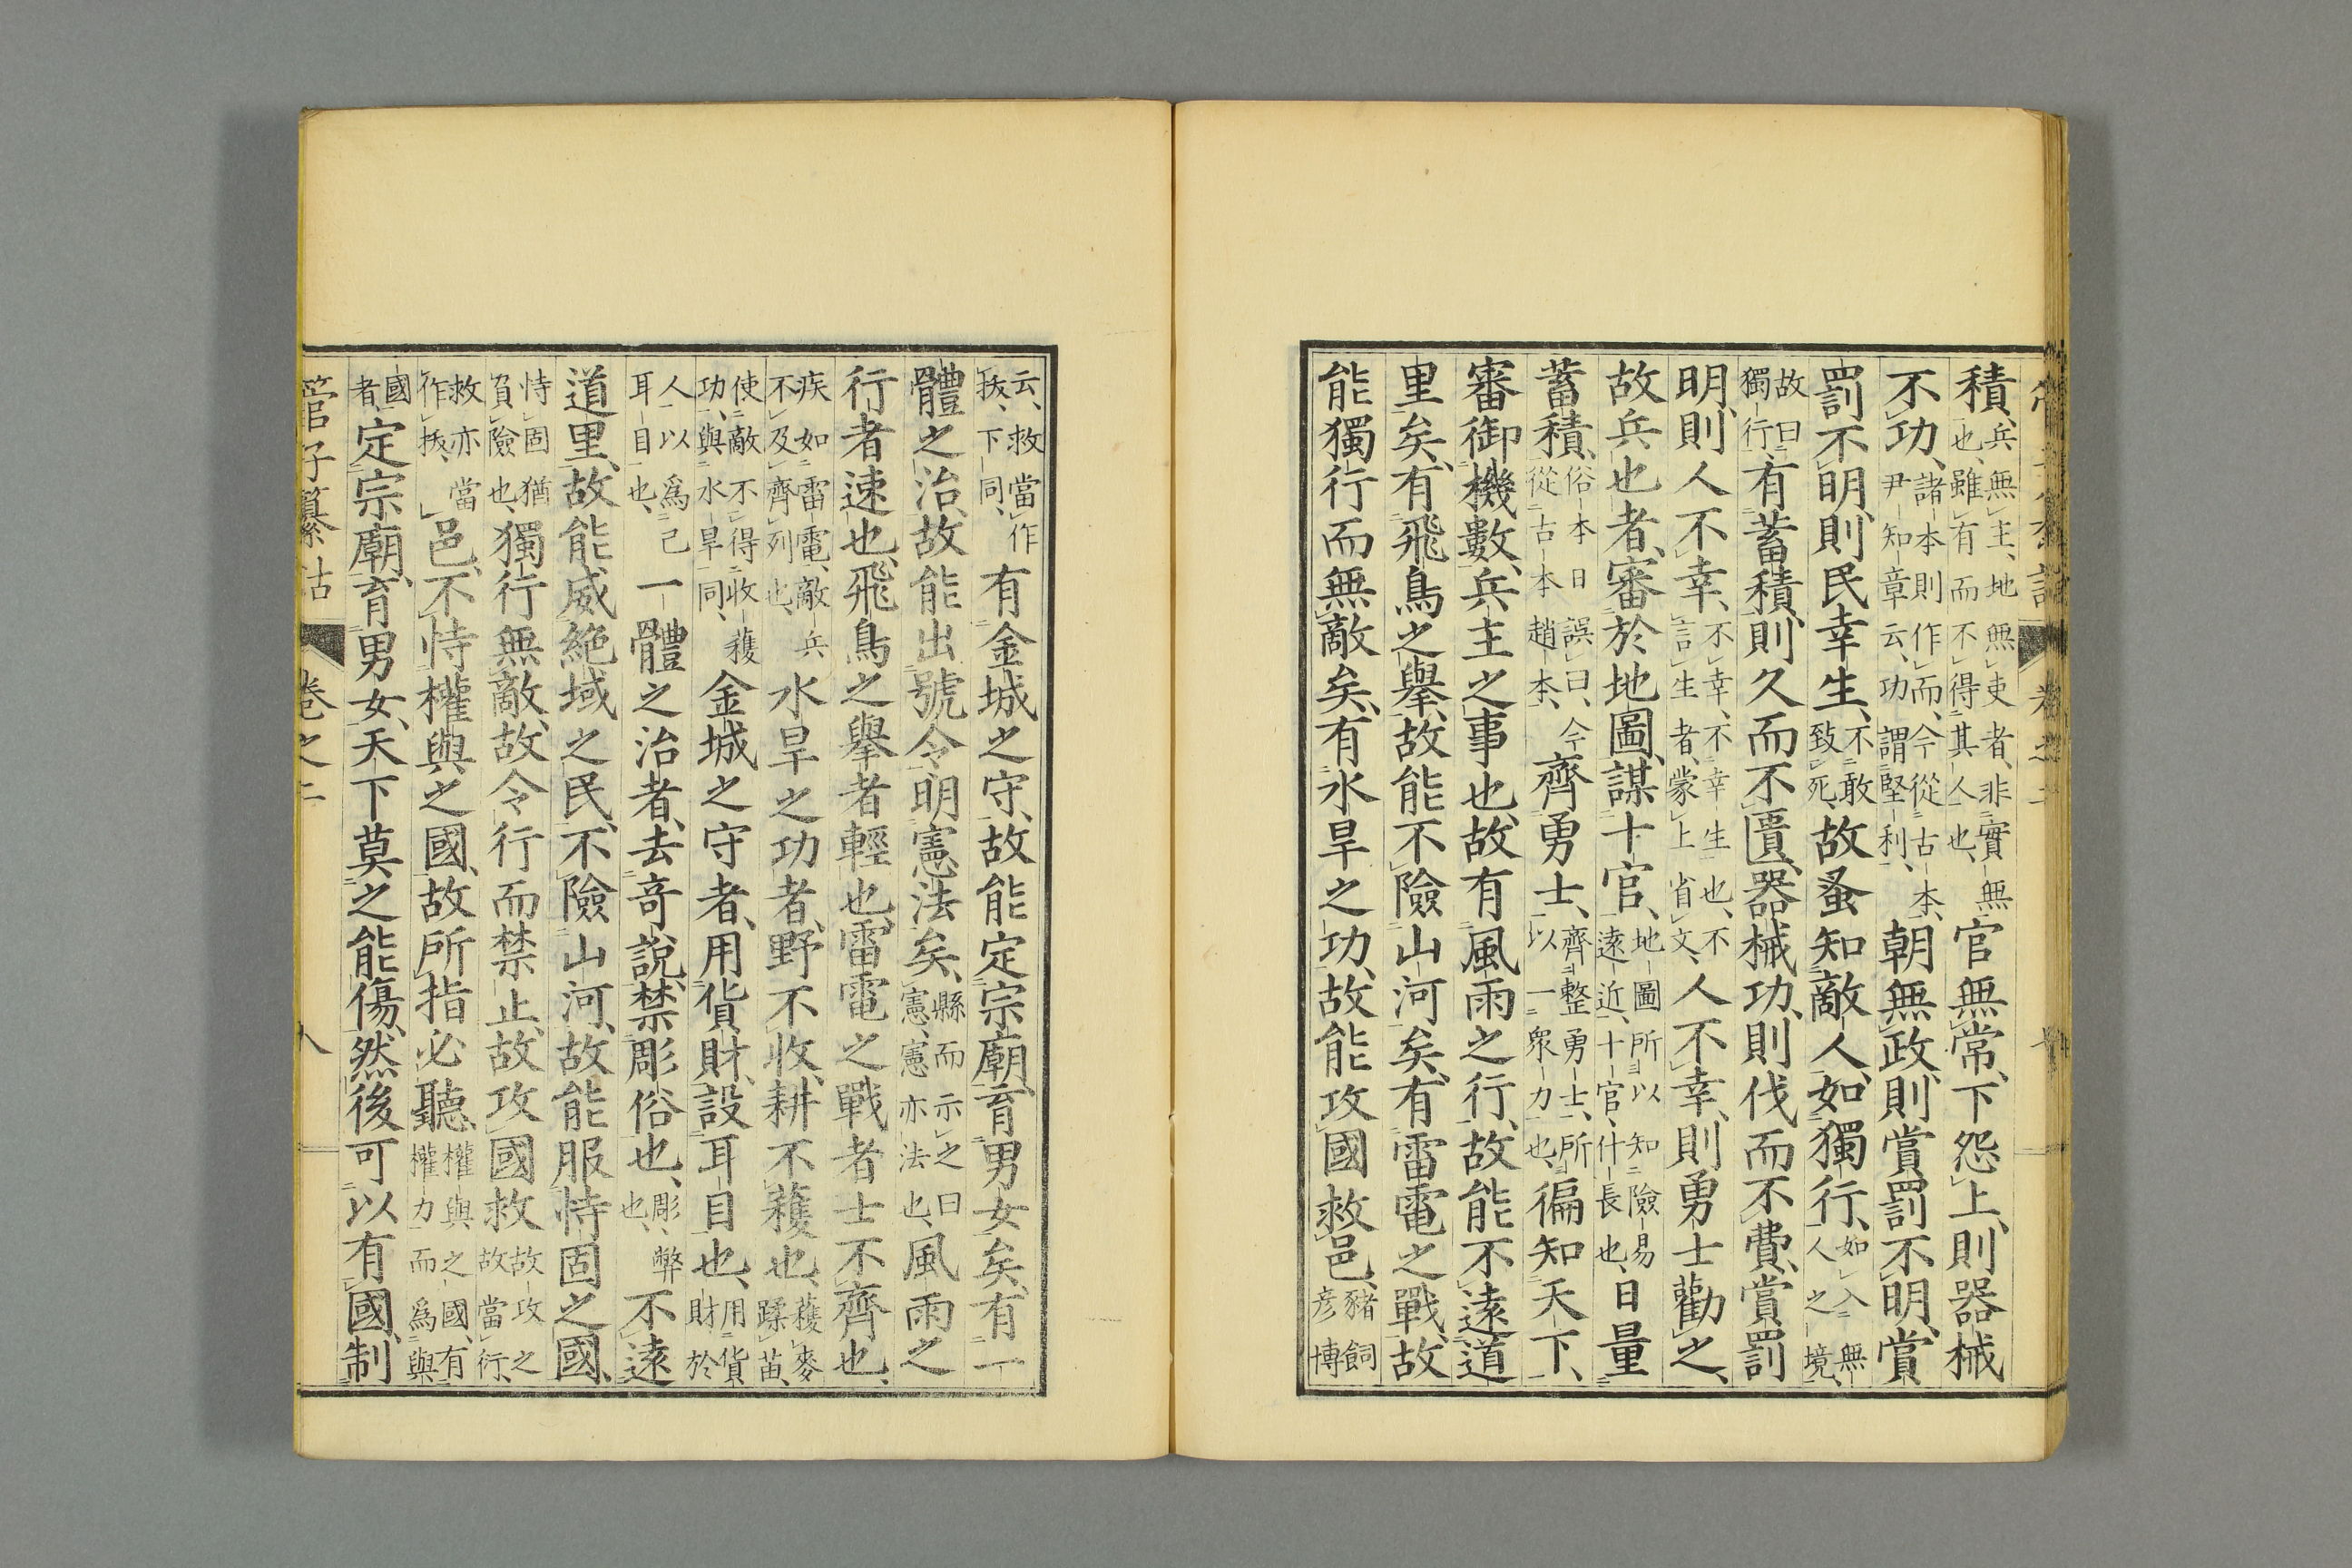 積、兵無主、地無吏者、非實無也、雖有而不得其人也、官無常、下怨上、則器械
不功、諸本則作而、今從古本、尹知章云、功謂堅利、朝無政、則賞罰不明、賞
罰不明、則民幸生、不敢致死、故蚤知敵人、如獨行、如入無人之境、
故曰獨行、有蓄積、則久而不匱、器械功、則伐而不費、賞罰
明、則人不幸、不幸、不幸生也、不言生者、蒙上省文、人不幸、則勇士勸之、
故兵也者、審於地圖、謀十官、地圖所以知險易遠近、十官、什長也、日量
蓄積、俗本日誤曰、今從古本趙本、齊勇士、齊整勇士、所以一衆力也、徧知天下、
審御機數、兵主之事也、故有風雨之行、故能不遠道
里矣、有飛鳥之擧、故能不險山河矣、有雷電之戰、故
能獨行而無敵矣、有水旱之功、故能攻國救邑、豬飼彥博
云、救當作拔、下同、有金城之守、故能定宗廟、育男女矣、有一
體之治、故能出號令、明憲法矣、縣而示之曰憲、憲亦法也、風雨之
行者、速也、飛鳥之擧者、輕也、雷電之戰者、士不齊也、
疾如雷電、敵兵不及齊列也、水旱之功者、野不收、耕不穫也、穫麥蹂苗、
使敵不得收穫功、與水旱同、金城之守者、用貨財、設耳目也、用貨財於
人以爲己耳目也、一體之治者、去奇說、禁彫俗也、彫、弊也、不遠
道里、故能威絕域之民、不險山河、故能服恃固之國、
恃固猶負險也、獨行無敵、故令行而禁止、故攻國救故攻之故當衍、
救亦當作拔、邑、不恃權與之國、故所指必聽、權與之國、有權力而爲與
國者、定宗廟、育男女、天下莫之能傷、然後可以有國、制
管子纂詁　卷之二　八